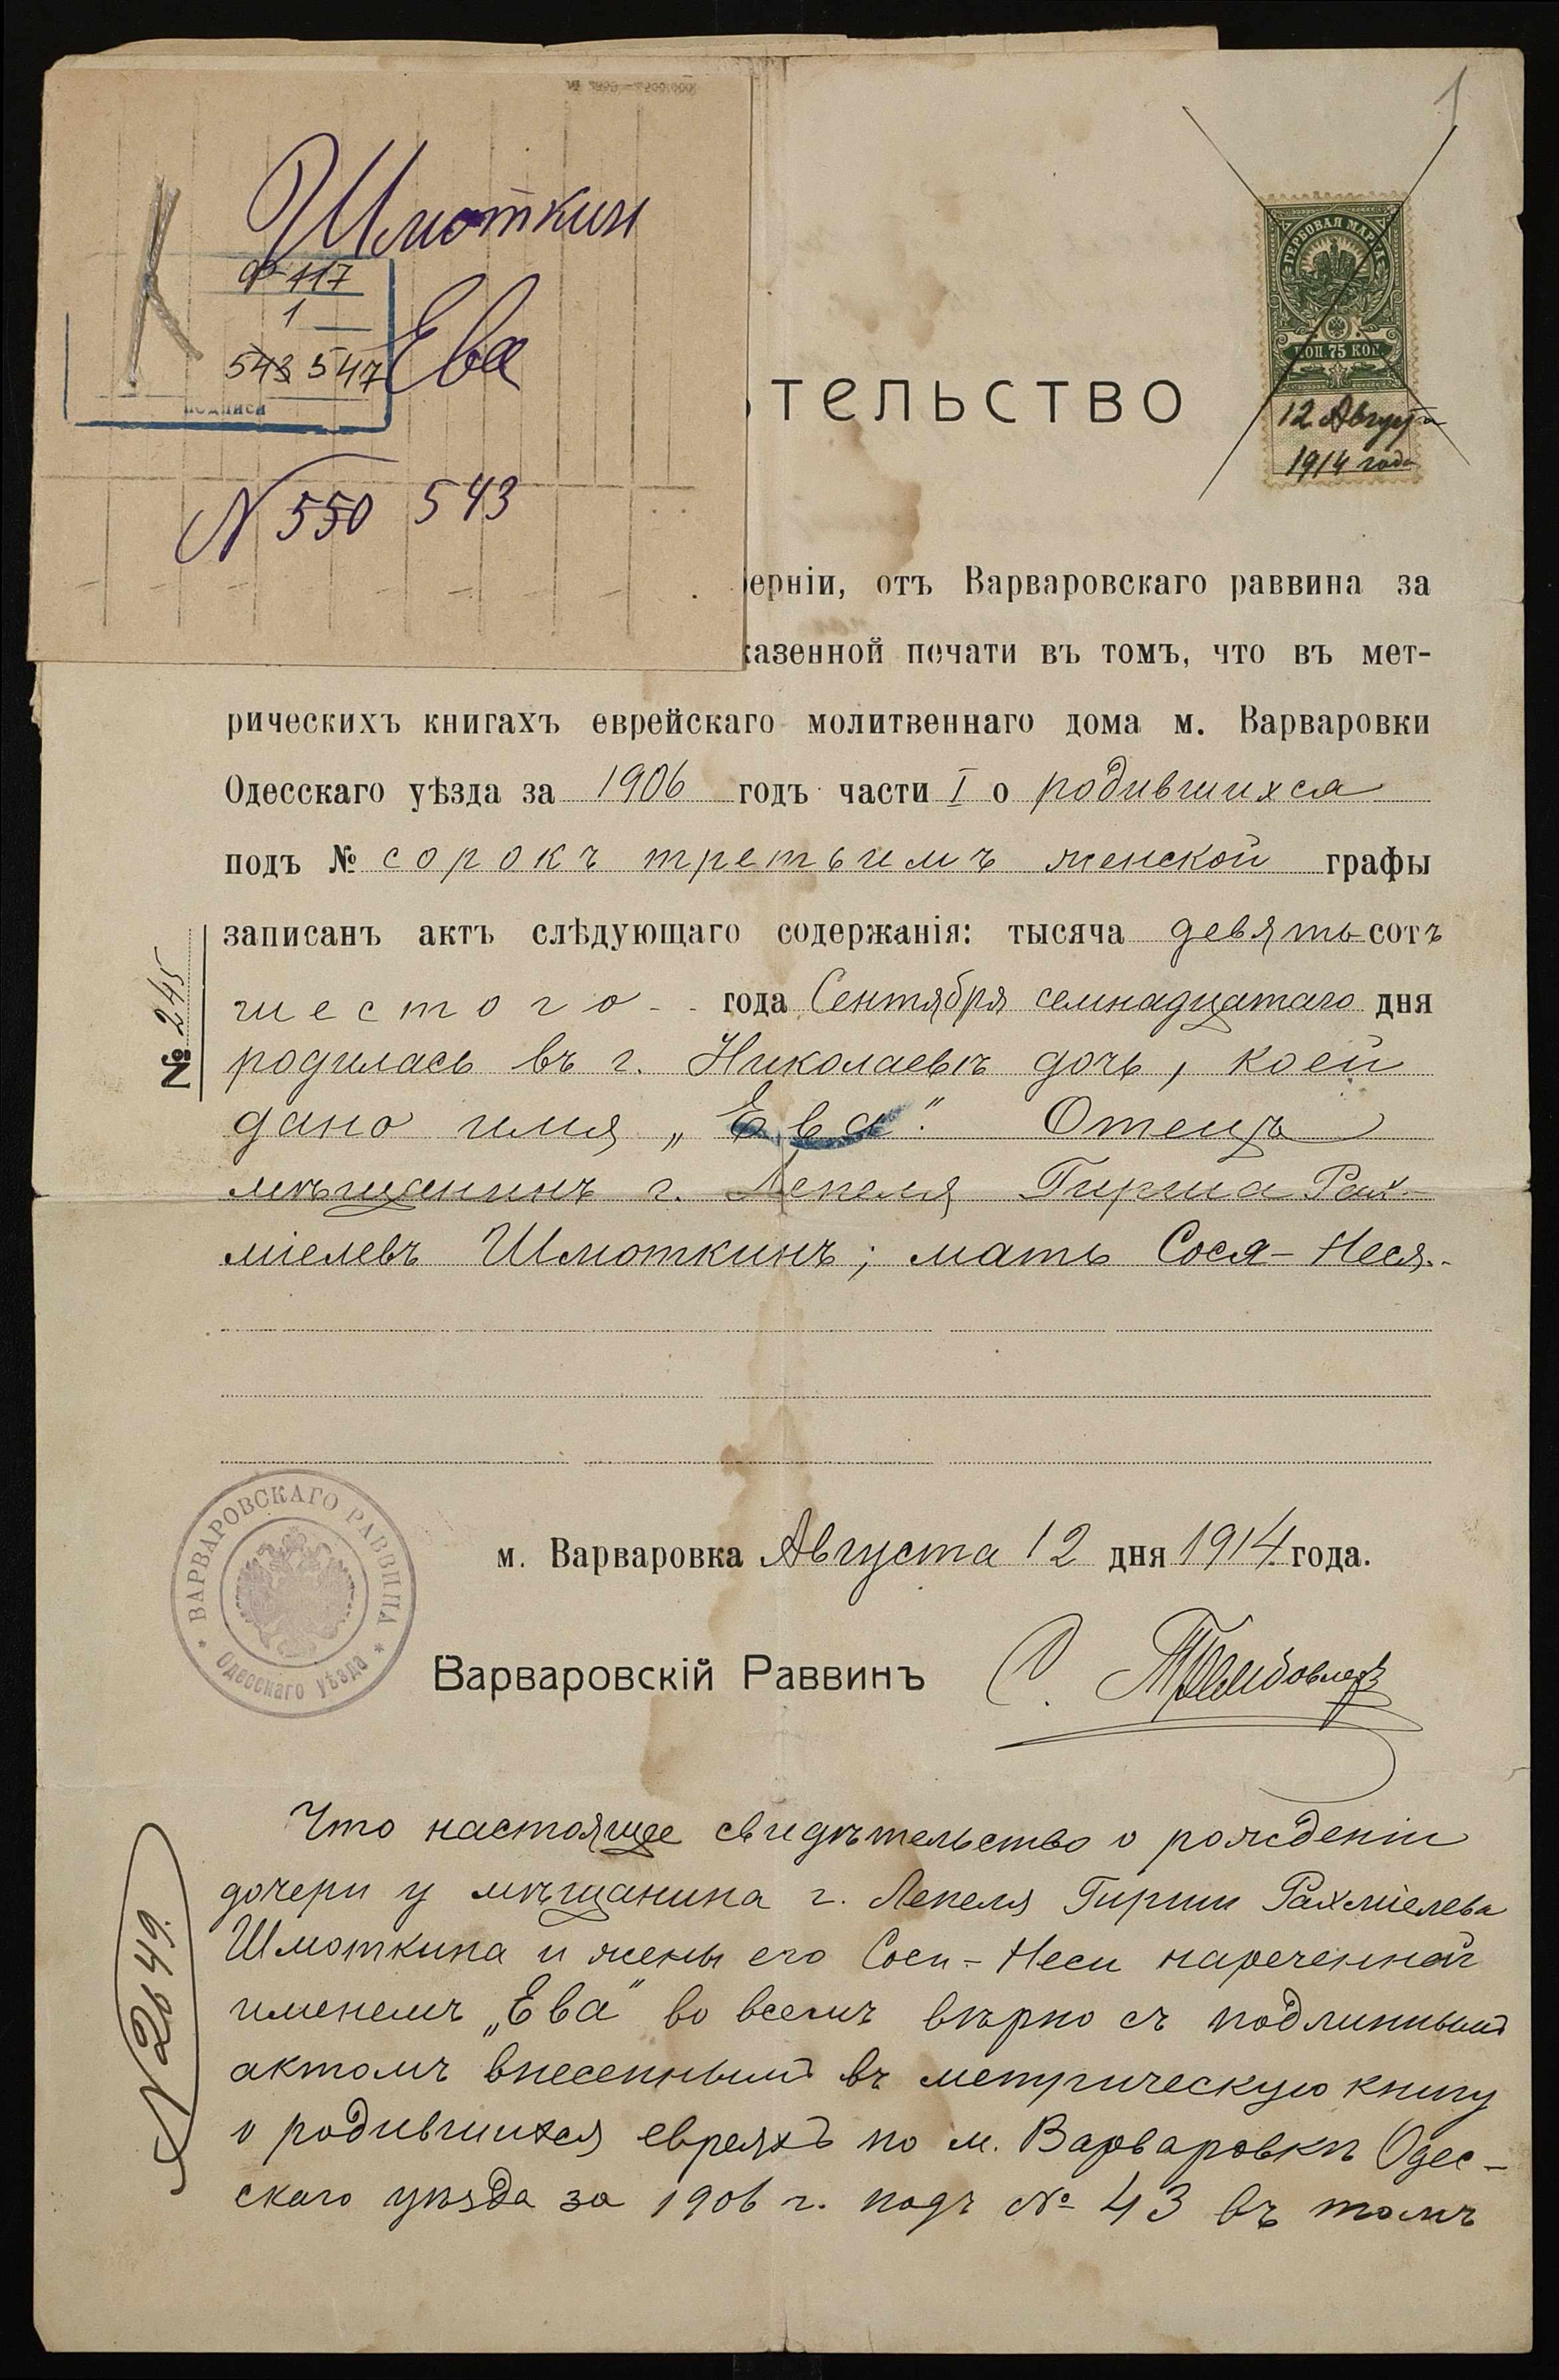 1
Шмоткин
Ф 117
1
543 547
Ева
подписи
N 550 543
ГЕРБОВАЯ МАРКА
КОП. 75 КОП.
12 Августа
1914 года
тельство
ерніи, отъ Варваровскаго раввина за
казенной печати въ томъ, что въ мет-
рическихъ книгахъ еврейскаго молитвеннаго дома м. Варваровки
Одесскаго уѣзда за 1906 годъ части I о родившихся
подъ № сорокъ третьимъ женской графы
записанъ актъ слѣдующаго содержанія: тысяча девятьсотъ
шестого года Сентября семнадцатаго дня
№ 245
родилась въ г. Николаевѣ дочь, коей
дано имя „Ева". Отецъ
мѣщанинъ г. Лепеля Гирша Рах-
міелевъ Шмоткинъ; мать Сося-Неся.
ВАРВАРОВСКАГО РАВВИНА
Одесскаго уѣзда
м. Варваровка Августа 12 дня 1914 года.
Варваровскій Раввинъ
Что настоящее свидѣтельство о рожденіи
дочери у мѣщанина г. Лепеля Гирши Рахміелева
Шмоткина и жены его Соси-Неси нареченной
именемъ „Ева" во всемъ вѣрно съ подлиннымъ
актомъ внесеннымъ въ метрическую книгу
о родившихся евреяхъ по м. Варваровкѣ Одес-
скаго уѣзда за 1906 г. подъ № 43 въ томъ
N 2649.